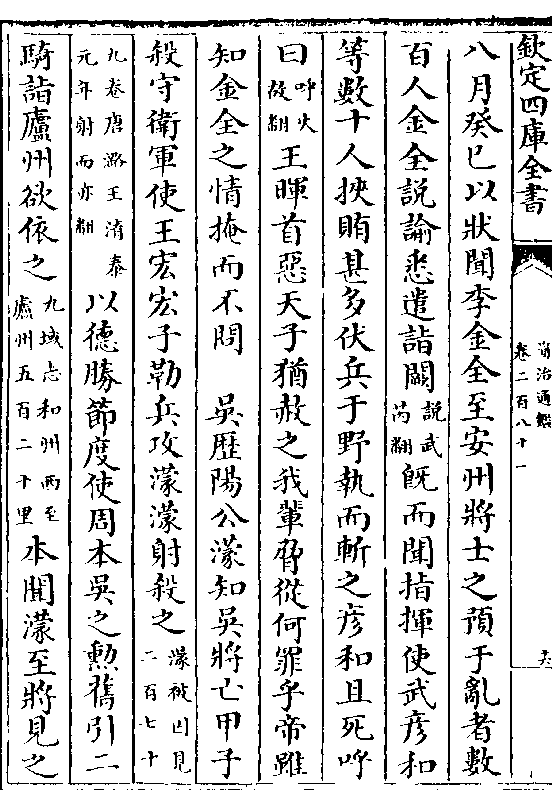 欽定四庫全書
資治通鑑
卷二百八十一
十六
八月癸巳以狀聞李金全至安州將士之預于亂者數
百人金全説諭悉遣詣闕説武芮翻既而聞指揮使武彦和
等數十人挾賄甚多伏兵于野執而斬之彦和且死呼
曰呼火故翻王暉首惡天子猶赦之我輩脅從何罪乎帝雖
知金全之情掩而不問　吳歷陽公濛知吳將亡甲子
殺守衛軍使王宏宏子勒兵攻濛濛射殺之濛被囚見二百七十
九卷唐潞王清泰元年射而亦翻以德勝節度使周本吳之勲舊引二
騎詣廬州欲依之九域志和州西至廬州五百二十里本聞濛至將見之